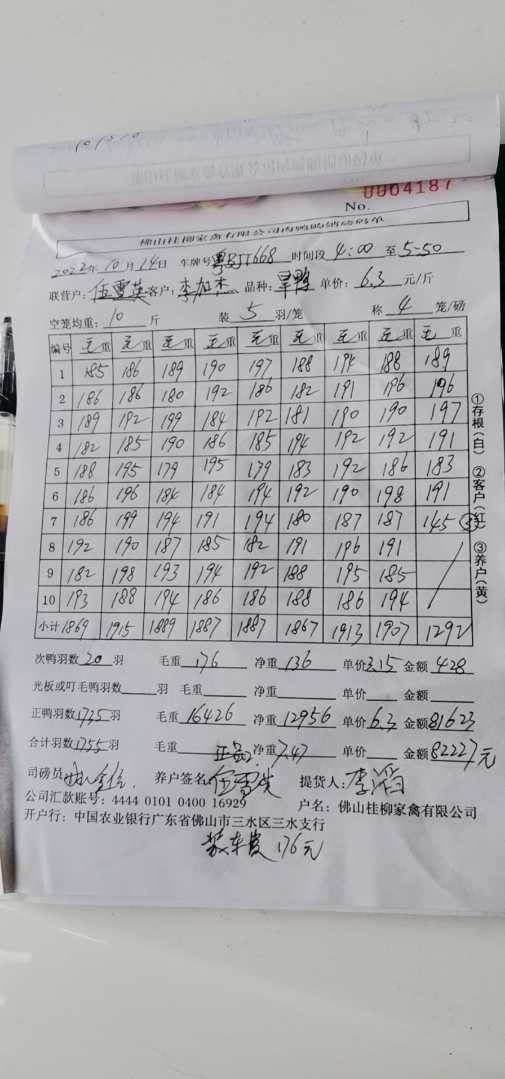 0004187
No.
佛山桂柳家禽有限公司肉鸭购销磅码单
2022年10月14日 车牌号 粤BJT668 时间段 4:00 至 5-50
联营户: 伍雪英 客户: 李加杰 品种: 旱鸭 单价: 6.3 元/斤
空笼均重: 10 斤 装 5 羽/笼 称 4 笼/磅
编号 毛重 毛重 毛重 毛重 毛重 毛重 毛重 毛重 毛重
1 185 186 189 190 197 188 194 188 189
2 186 186 180 192 186 182 191 196 196
3 189 192 199 184 192 181 190 190 197
4 182 185 190 186 185 194 192 192 191
5 188 195 179 195 179 183 192 186 183
6 186 196 184 184 194 192 190 198 191
7 186 199 194 191 194 180 187 187 145
8 192 190 187 185 182 191 196 191
9 182 198 193 194 192 188 195 185
10 193 188 194 186 186 188 186 194
小计 1869 1915 1889 1887 1887 1867 1913 1907 1292
①存根(白) ②客户(红) ③养户(黄)
次鸭羽数 20 羽 毛重 176 净重 136 单价 3.15 金额 428
光板或叮毛鸭羽数 羽 毛重 净重 单价 金额
正鸭羽数 1735 羽 毛重 16426 净重 12956 单价 6.3 金额 81623
合计羽数 1755 羽 毛重 净重 7.47 单价 金额 82227元
司磅员 养户签名 提货人: 李滔
公司汇款账号: 4444 0101 0400 16929 户名: 佛山桂柳家禽有限公司
开户行: 中国农业银行广东省佛山市三水区三水支行
装车费 176元